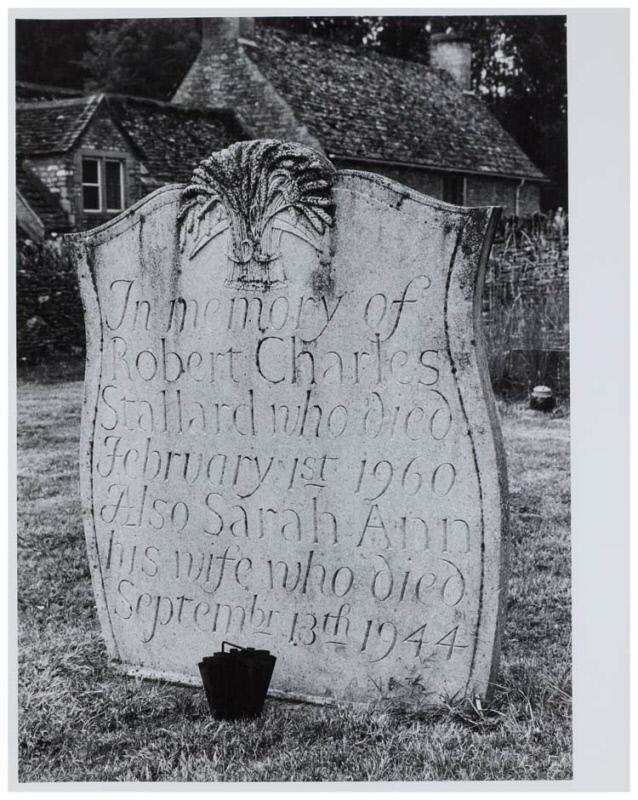 In memory of
Robert Charles
Stallard who died
February 1st 1960
Also Sarah Ann
his wife who died
Septembr 13th 1944